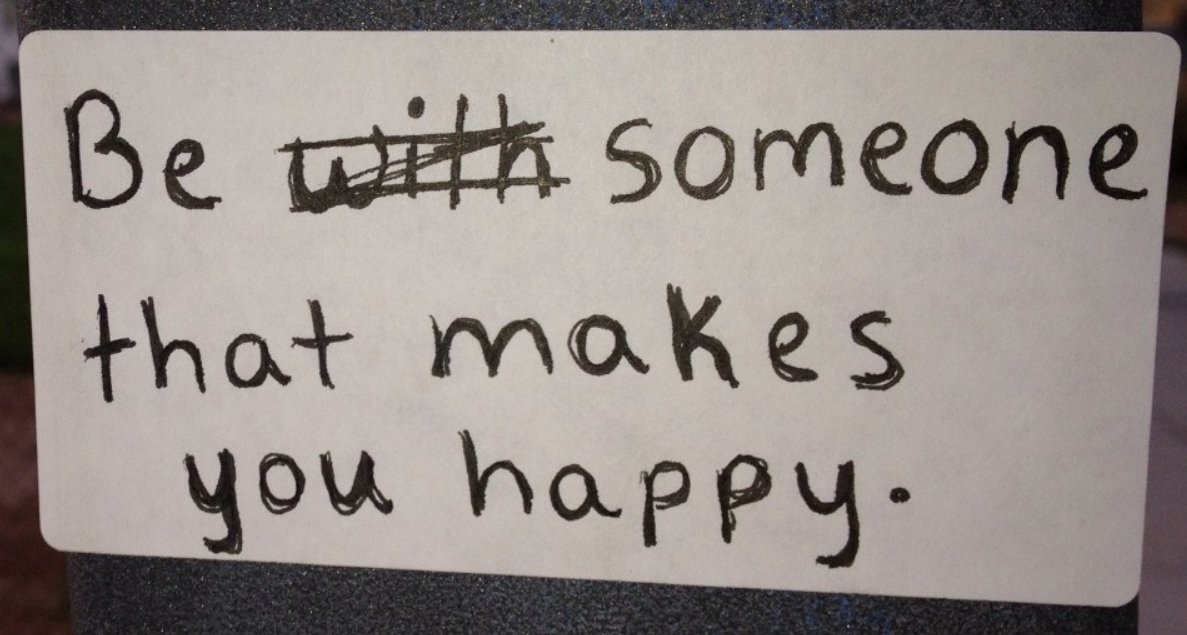 Be with someone
that makes
you happy.